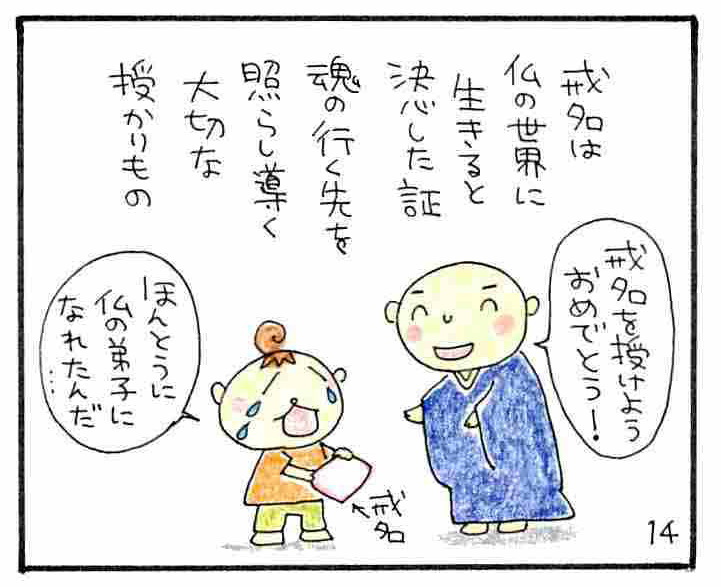 戒名は
仏の世界に
生きると
決心した証
魂の行く先を
照らし導く
大切な
授かりもの
戒名を授けよう
おめでとう!
ほんとうに
仏の弟子に
なれたんだ…
戒名
14